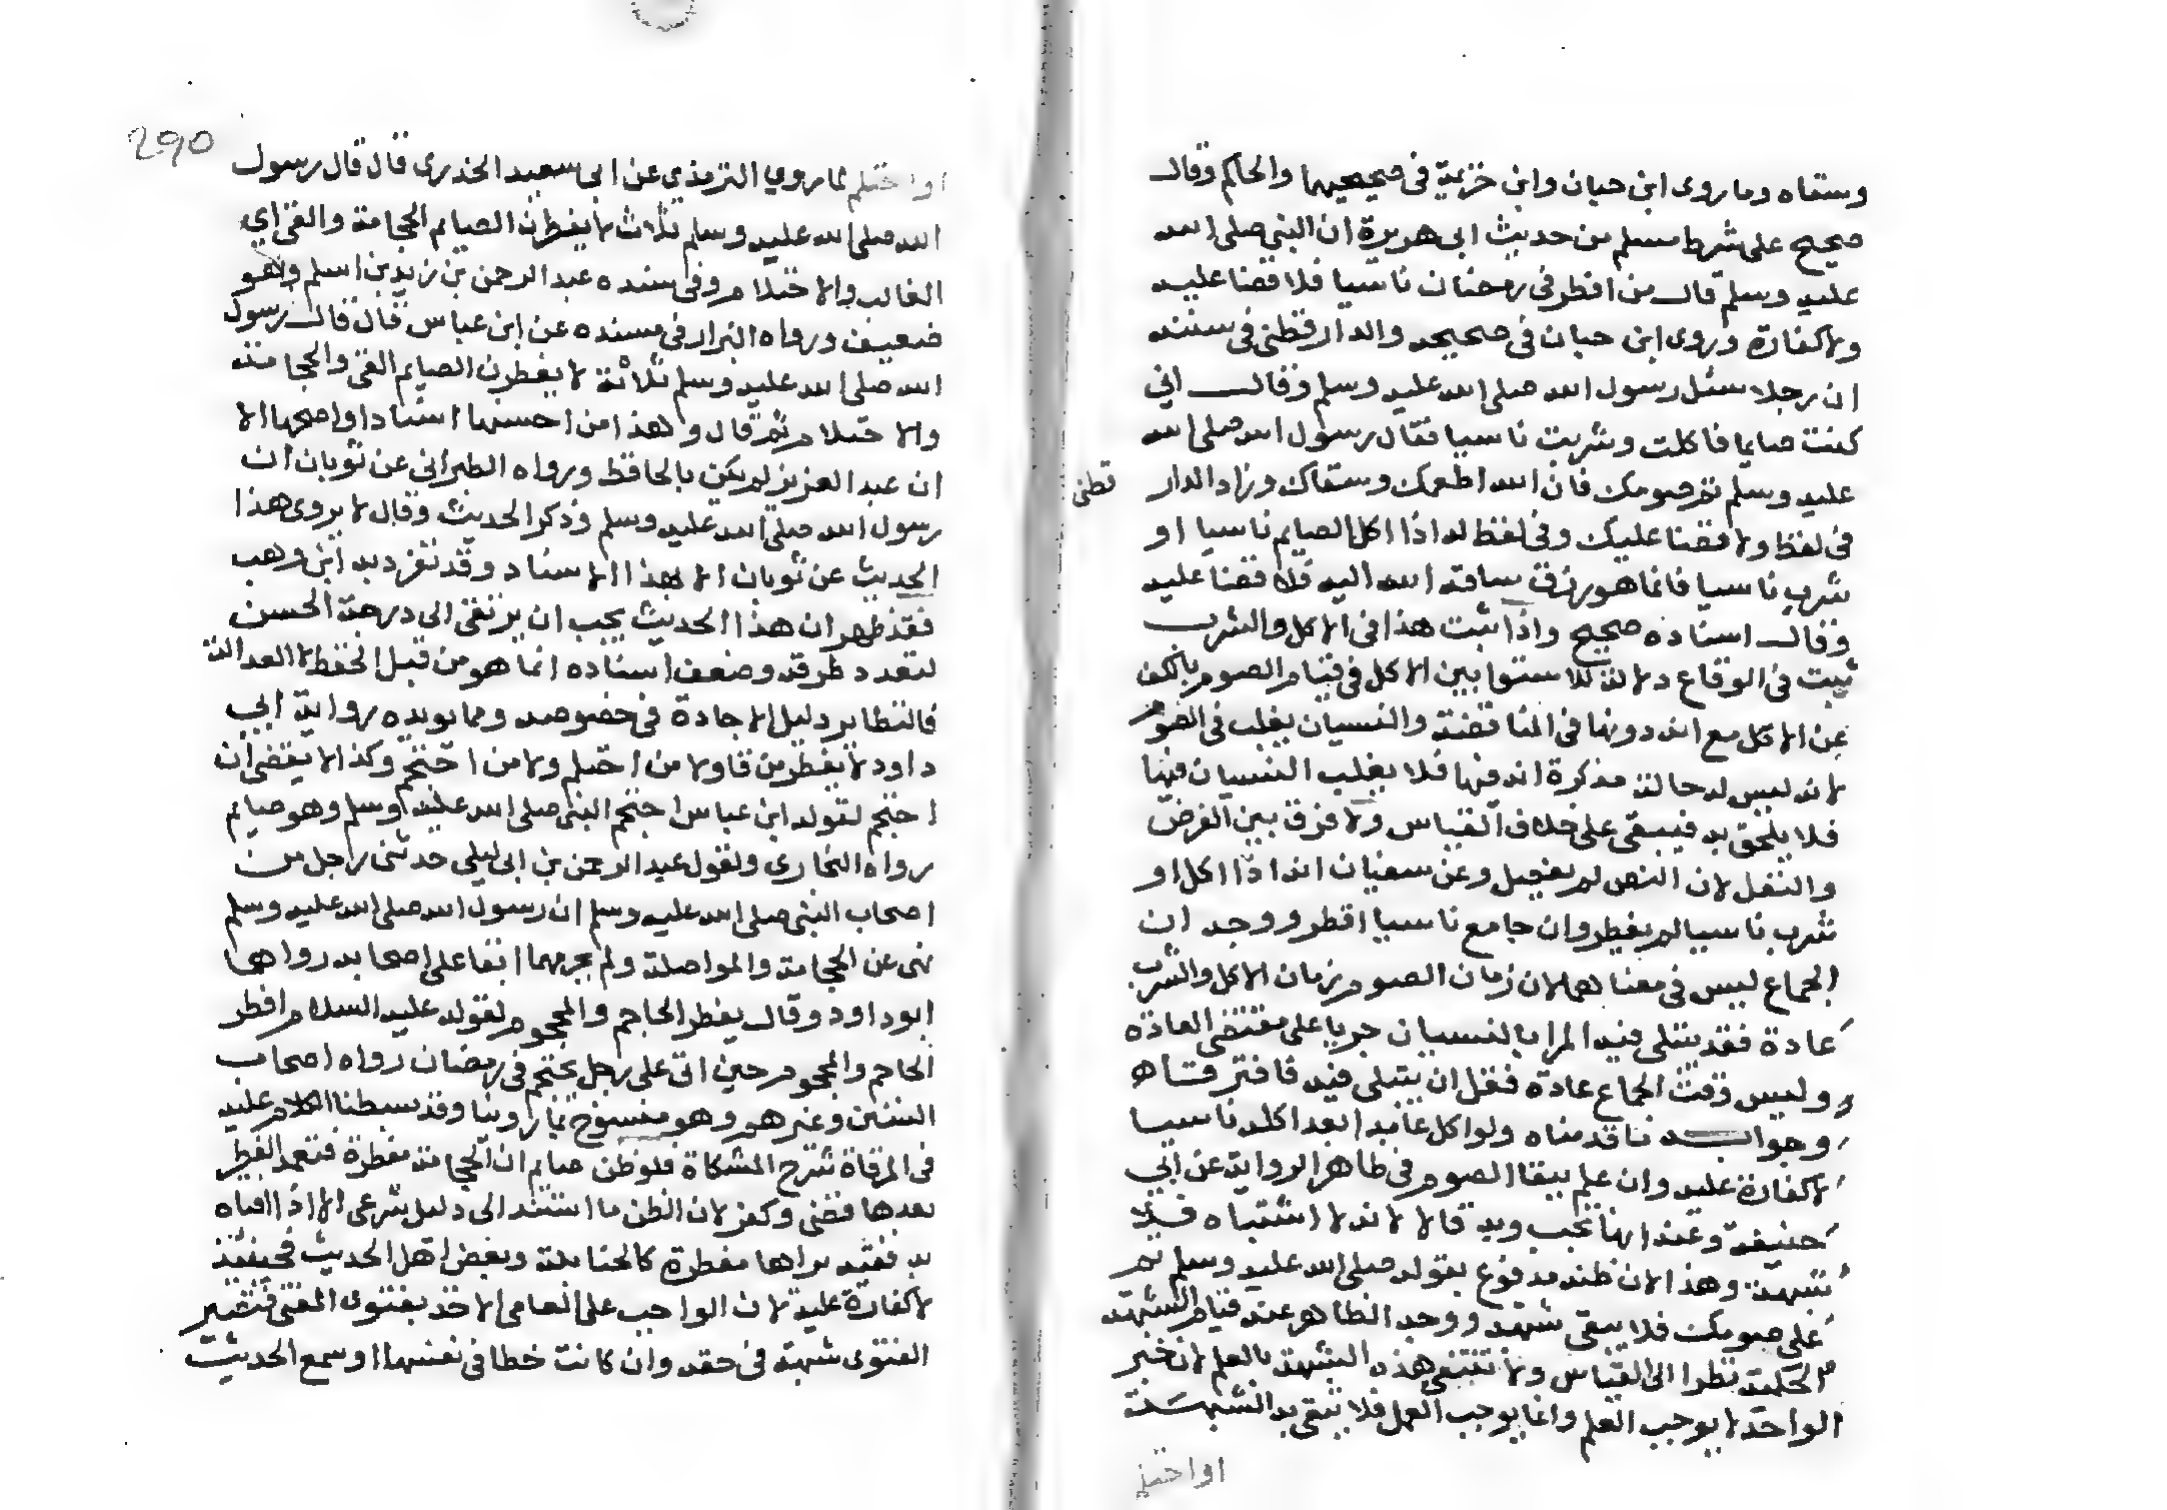 وسقاه وما روى ابن حبان وابن خزيمة في صحيحيهما والحاكم وقال
صحيح على شرط مسلم من حديث ابى هريرة ان النبى صلى الله
عليه وسلم قال من افطر فى رمضان ناسيا فلا قضا عليه
ولا كفارة وروى ابن حبان فى صحيحه والدارقطنى فى سننه
ان رجلا سئل رسول الله صلى الله عليه وسلم وقال انى
كنت صايما فاكلت وشربت ناسيا فقال رسول الله صلى الله
عليه وسلم تم صومك فان الله اطعمك وسقاك وزاد الدار قطنى
فى لفظ ولا قضا عليك وفى لفظ له اذا اكل الصايم ناسيا او
شرب ناسيا فانما هو رزق ساقه الله اليه فلا قضا عليه
وقال اسناده صحيح واذا ثبت هذا فى الاكل والشرب
ثبت فى الوقاع دلالة للاستوا بين الاكل فى قيام الصوم بالكف
عن الاكل مع انه دونها فى المناقضة والنسيان يغلب فى الصوم
لانه ليس له حالة مذكرة انه فيها فلا يغلب النسيان فيها
فلا يلحق به فيبقى على خلاف القياس ولا فرق بين الفرض
والنفل لان النص لم يفصل وعن سفيان انه اذا اكل او
شرب ناسيا لم يفطر وان جامع ناسيا افطر ووجه ان
الجماع ليس فى معناهما لان زمان الصوم زمان الاكل والشرب
عادة فقد يبتلى فيه المرا بالنسيان جريا على مقتضى العادة
وليس وقت الجماع عادة فقل ان يبتلى فيه فافترقا
وجوابه ما قدمناه ولو اكل عامدا بعد اكله ناسيا
لا كفارة عليه وان علم ببقا الصوم فى ظاهر الرواية عن ابى
حنيفة وعنه انها تجب وبه قالا لانه لا اشتباه فلا
شبهة وهذا لان ظنه مدفوع بقوله صلى الله عليه وسلم تم
على صومك فلا يبقى شبهة ووجه الظاهر عند قيام الشبهة
الحكمية نظرا الى القياس ولا تنتفى هذه الشبهة بالعلم لان خبر
الواحد لا يوجب العلم وانما يوجب العمل فلا تبقى به الشبهة
اواحتلم
290
اواحتلم لما روى الترمذى عن ابى سعيد الخدرى قال قال رسول
الله صلى الله عليه وسلم ثلاث لا يفطرن الصيام الحجامة والقى اى
الغالب والاحتلام وفى سنده عبد الرحمن بن زيد بن اسلم وهو
ضعيف ورواه البزار فى مسنده عن ابن عباس قال قال رسول
الله صلى الله عليه وسلم ثلاثة لا يفطرن الصيام القى والحجامة
والاحتلام ثم قال وهذا من احسنها اسنادا واصحها الا
ان عبد العزيز لم يكن بالحافظ ورواه الطبرانى عن ثوبان ان
رسول الله صلى الله عليه وسلم وذكر الحديث وقال لا يروى هذا
الحديث عن ثوبان الا بهذا الاسناد وقد تفرد به ابن وهب
فقد ظهر ان هذا الحديث يجب ان يرتقى الى درجة الحسن
لتعدد طرقه وضعف اسناده انما هو من قبل الحفظ لا العدالة
فالتظاير دليل الاجادة فى خصوصه ومما يويده رواية ابى
داود لا يفطر من قا ولا من احتلم ولا من احتجم وكذا لا يقضى ان
احتجم لقول ابن عباس احتجم النبى صلى الله عليه وسلم وهو صيام
رواه البخارى ولقول عبد الرحمن بن ابى ليلى حدثنى رجل من
اصحاب النبى صلى الله عليه وسلم ان رسول الله صلى الله عليه وسلم
نهى عن الحجامة والمواصلة ولم يحرمهما ابقا على اصحابه رواهما
ابو داود وقال يفطر الحاجم والمحجوم لقوله عليه السلام افطر
الحاجم والمحجوم حين اتى على رجل يحتجم فى رمضان رواه اصحاب
السنن وغيرهم وهو منسوخ بما روينا وقد بسطنا الكلام عليه
فى المرقاة شرح المشكاة فلو ظن صايم ان الحجامة مفطرة فتعمد الفطر
بعدها قضى وكفر لان الظن ما استند الى دليل شرعى الا اذا افتاه
به فقيه يراها مفطرة كالحنابلة وبعض اهل الحديث فحينئذ
لا كفارة عليه لان الواجب على العامى الاخذ بفتوى المفتى فتصير
الفتوى شبهة فى حقه وان كانت خطا فى نفسها او سمع الحديث